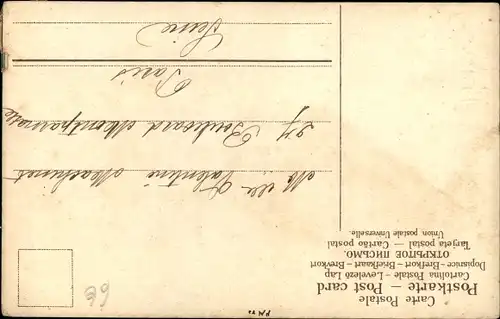 Carte Postale
Postkarte — Post card
Cartolina Postale - Levelező Lap
Dopisnice - Brefkort - Briefkaart - Brevkort
ОТКРЫТОЕ ПИСЬМО.
Tarjeta postal — Cartão postal
Union postale Universelle.
Mlle Valentine
27 Boulevard Montparnasse
Paris
Seine